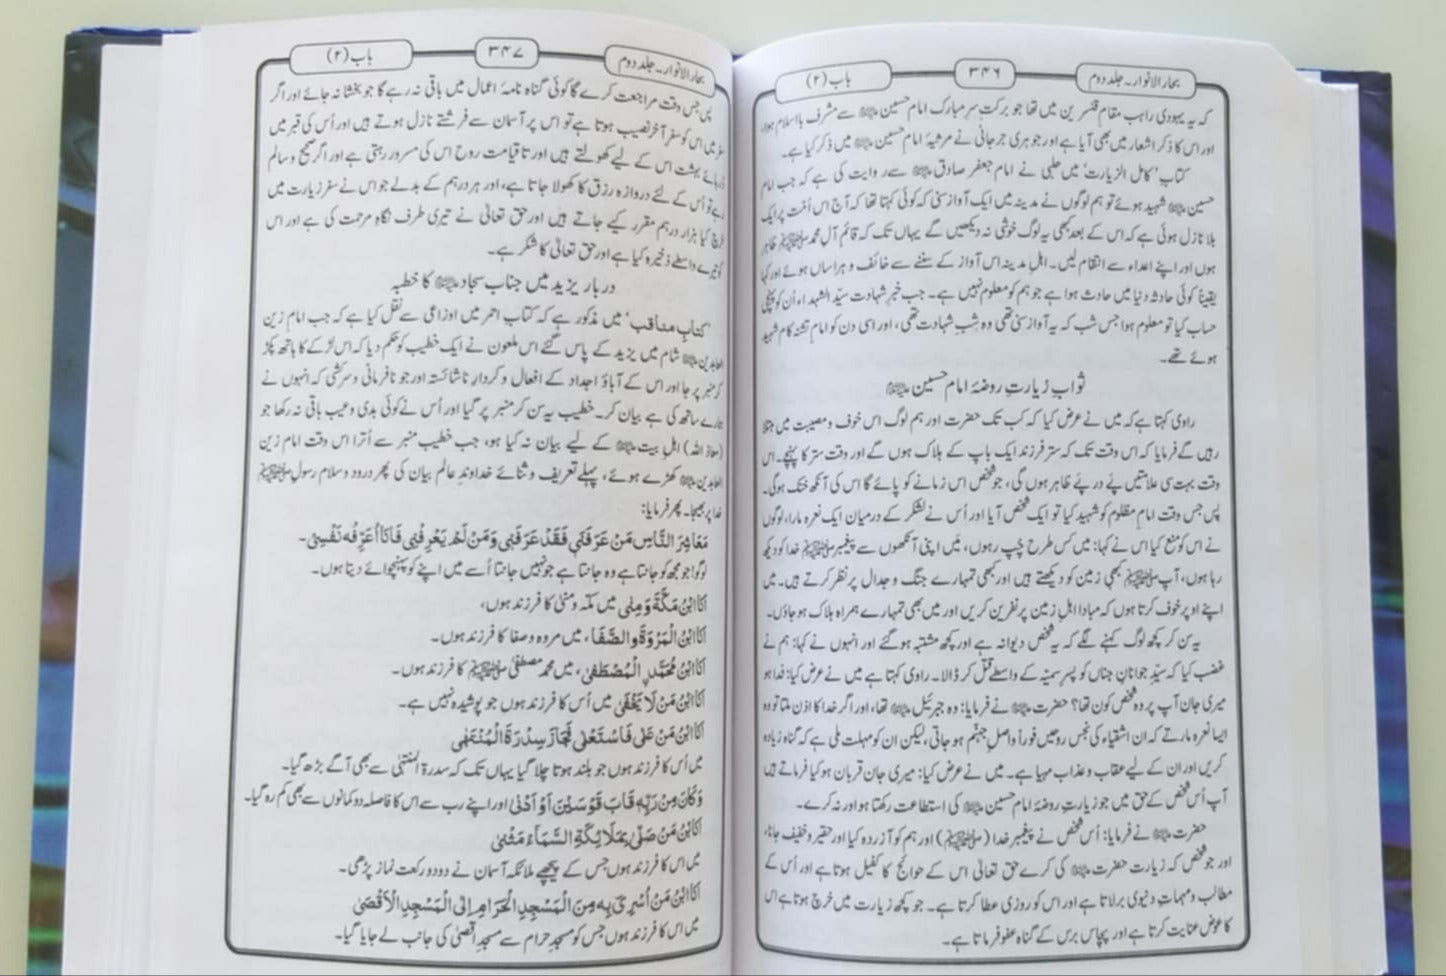 بحار الانوار۔ جلد دوم
۳۴۶
باب (۲)
کہ یہ یہودی راہب مقام قنسرین میں تھا جو برکتِ سرِ مبارک امام حسین علیہ السلام سے مشرف بااسلام ہوا،
اور اس کا ذکر اشعار میں بھی آیا ہے اور جوہری جرجانی نے مرثیۂ امام حسین علیہ السلام میں ذکر کیا ہے۔
کتاب 'کامل الزیارت' میں حلبی نے امام جعفر صادق علیہ السلام سے روایت کی ہے کہ جب امام
حسین علیہ السلام شہید ہوئے تو ہم لوگوں نے مدینہ میں ایک آواز سنی کہ کوئی کہتا تھا کہ آج اس اُمت پر ایک
بلا نازل ہوئی ہے کہ اس کے بعد کبھی یہ لوگ خوشی نہ دیکھیں گے یہاں تک کہ قائم آلِ محمد صلی اللہ علیہ وسلم ظاہر
ہوں اور اپنے اعداء سے انتقام لیں۔ اہلِ مدینہ اس آواز کے سننے سے خائف و ہراساں ہوئے اور کہا
یقیناً کوئی حادثہ دنیا میں حادث ہوا ہے جو ہم کو معلوم نہیں ہے۔ جب خبرِ شہادت سیّد الشہداء اُن کو پہنچی
حساب کیا تو معلوم ہوا جس شب کہ یہ آواز سنی تھی وہ شبِ شہادت تھی، اور اسی دن کو امام تشنہ کام شہید
ہوئے تھے۔
ثواب زیارتِ روضۂ امام حسین علیہ السلام
راوی کہتا ہے کہ میں نے عرض کیا کہ کب تک حضرت اور ہم لوگ اس خوف و مصیبت میں مبتلا
رہیں گے فرمایا کہ اس وقت تک کہ ستر فرزند ایک باپ کے ہلاک ہوں گے اور وقت ستر کا پہنچے۔ اس
وقت بہت سی علامتیں پے در پے ظاہر ہوں گی، جو شخص اس زمانے کو پائے گا اس کی آنکھ خنک ہوگی۔
پس جس وقت امامِ مظلوم کو شہید کیا تو ایک شخص آیا اور اُس نے لشکر کے درمیان ایک نعرہ مارا، لوگوں
نے اس کو منع کیا اس نے کہا: میں کس طرح چُپ رہوں، میں اپنی آنکھوں سے پیغمبر صلی اللہ علیہ وسلم خدا کو دیکھ
رہا ہوں، آپ صلی اللہ علیہ وسلم کبھی زمین کو دیکھتے ہیں اور کبھی تمہارے جنگ و جدال پر نظر کرتے ہیں۔ میں
اپنے اوپر خوف کرتا ہوں کہ مبادا اہلِ زمین پر نفرین کریں اور میں بھی تمہارے ہمراہ ہلاک ہو جاؤں۔
یہ سن کر کچھ لوگ کہنے لگے کہ یہ شخص دیوانہ ہے اور کچھ مشتبہ ہو گئے اور انہوں نے کہا: ہم نے
غضب کیا کہ سیّدِ جوانانِ جناں کو پسرِ سمیّہ کے واسطے قتل کر ڈالا۔ راوی کہتا ہے میں نے عرض کیا: فدا ہو
میری جان آپ پر وہ شخص کون تھا؟ حضرت علیہ السلام نے فرمایا: وہ جبرئیل علیہ السلام تھا، اور اگر خدا کا اذن ملتا تو وہ
ایسا نعرہ مارتے کہ ان اشقیاء کی نجس روحیں فوراً واصلِ جہنم ہو جاتی، لیکن ان کو مہلت ملی ہے کہ گناہ زیادہ
کریں اور ان کے لیے عقاب و عذاب مہیا ہے۔ میں نے عرض کیا: میری جان قربان ہو کیا فرماتے ہیں
آپ اُس شخص کے حق میں جو زیارتِ روضۂ امام حسین علیہ السلام کی استطاعت رکھتا ہو اور نہ کرے۔
حضرت علیہ السلام نے فرمایا: اُس شخص نے پیغمبرِ خدا (صلی اللہ علیہ وسلم) اور ہم کو آزردہ کیا اور حقیر و خفیف جانا،
اور جو شخص کہ زیارت حضرت علیہ السلام کی کرے حق تعالیٰ اس کے حوائج کا کفیل ہوتا ہے اور اُس کے
مطالب و مہماتِ دنیوی بر لاتا ہے اور اس کو روزی عطا کرتا ہے۔ جو کچھ زیارت میں خرچ ہوتا ہے اس
کا عوض عنایت کرتا ہے اور پچاس برس کے گناہ عفو فرماتا ہے۔
بحار الانوار۔ جلد دوم
۳۴۷
باب (۲)
پس جس وقت مراجعت کرے گا کوئی گناہ نامۂ اعمال میں باقی نہ رہے گا جو بخشا نہ جائے اور اگر
سفر میں اس کو سفرِ آخر نصیب ہوتا ہے تو اس پر آسمان سے فرشتے نازل ہوتے ہیں اور اُس کی قبر میں
بہشت اس کے لیے کھولتے ہیں اور تا قیامت روح اس کی مسرور رہتی ہے اور اگر صحیح و سالم
رہے تو اُس کے لئے دروازہ رزق کا کھولا جاتا ہے، اور ہر درہم کے بدلے جو اس نے سفرِ زیارت میں
خرچ کیا ہزار درہم مقرر کیے جاتے ہیں اور حق تعالیٰ نے تیری طرف نگاہِ مرحمت کی ہے اور اس
کو تیرے واسطے ذخیرہ کیا ہے اور حق تعالیٰ کا شکر ہے۔
دربارِ یزید میں جناب سجاد علیہ السلام کا خطبہ
'کتاب مناقب' میں مذکور ہے کہ کتاب احمر میں اوزاعی سے نقل کیا ہے کہ جب امام زین
العابدین علیہ السلام شام میں یزید کے پاس گئے اس ملعون نے ایک خطیب کو حکم دیا کہ اس لڑکے کا ہاتھ پکڑ
کر منبر پر جا اور اس کے آباؤ اجداد کے افعال و کردارِ ناشائستہ اور جو نافرمانی و سرکشی کہ انہوں نے
ہمارے ساتھ کی ہے بیان کر۔ خطیب یہ سن کر منبر پر گیا اور اُس نے کوئی بدی و عیب باقی نہ رکھا جو
(معاذ اللہ) اہلِ بیت علیہ السلام کے لیے بیان نہ کیا ہو، جب خطیب منبر سے اُترا اس وقت امام زین
العابدین علیہ السلام کھڑے ہوئے، پہلے تعریف و ثنائے خداوندِ عالم بیان کی پھر درود و سلام رسول صلی اللہ علیہ وسلم
خدا پر بھیجا۔ پھر فرمایا:
مَعَاشِرَ النَّاسِ مَنْ عَرَفَنِي فَقَدْ عَرَفَنِي وَمَنْ لَمْ يَعْرِفْنِي فَأَنَا أُعَرِّفُه نَفْسِي۔
لوگو! جو مجھ کو جانتا ہے وہ جانتا ہے جو نہیں جانتا اُسے میں اپنے کو پہنچوائے دیتا ہوں۔
اَنَا ابْنُ مَكَّةَ وَ مِنٰى میں مکّہ و منیٰ کا فرزند ہوں،
اَنَا ابْنُ الْمَرْوَةِ وَ الصَّفَا، میں مروہ و صفا کا فرزند ہوں۔
اَنَا ابْنُ مُحَمَّدٍ الْمُصْطَفٰى، میں محمد مصطفیٰ صلی اللہ علیہ وسلم کا فرزند ہوں۔
اَنَا ابْنُ مَنْ لَا يَخْفٰى میں اُس کا فرزند ہوں جو پوشیدہ نہیں ہے۔
اَنَا ابْنُ مَنْ عَلٰى فَاسْتَعْلٰى فَجَازَ سِدْرَةَ الْمُنْتَهٰى
میں اُس کا فرزند ہوں جو بلند ہوتا چلا گیا یہاں تک کہ سدرۃ المنتہیٰ سے بھی آگے بڑھ گیا۔
وَ كَانَ مِنْ رَبِّهٖ قَابَ قَوْسَيْنِ اَوْ اَدْنٰى اور اپنے رب سے اس کا فاصلہ دو کمانوں سے بھی کم رہ گیا۔
اَنَا ابْنُ مَنْ صَلّٰى بِمَلَائِكَةِ السَّمَآءِ مَثْنٰى
میں اس کا فرزند ہوں جس کے پیچھے ملائکہ آسمان نے دو دو رکعت نماز پڑھی۔
اَنَا ابْنُ مَنْ اُسْرِیَ بِهٖ مِنَ الْمَسْجِدِ الْحَرَامِ اِلَى الْمَسْجِدِ الْاَقْصٰى
میں اس کا فرزند ہوں جس کو مسجدِ حرام سے مسجدِ اقصیٰ کی جانب لے جایا گیا۔